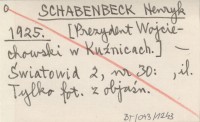 SCHABENBECK Henryk
1925. [Prezydent Wojcie-
chowski w Kuźnicach.] —
Światowid 2, nr 30: , il.
Tylko fot. z objaśn.